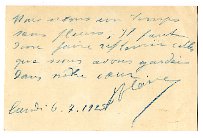 Nous avons un temps
sans fleurs, il faut
donc faire refleurir celles
que nous avons gardées
dans notre cœur
Lundi 6.7.192